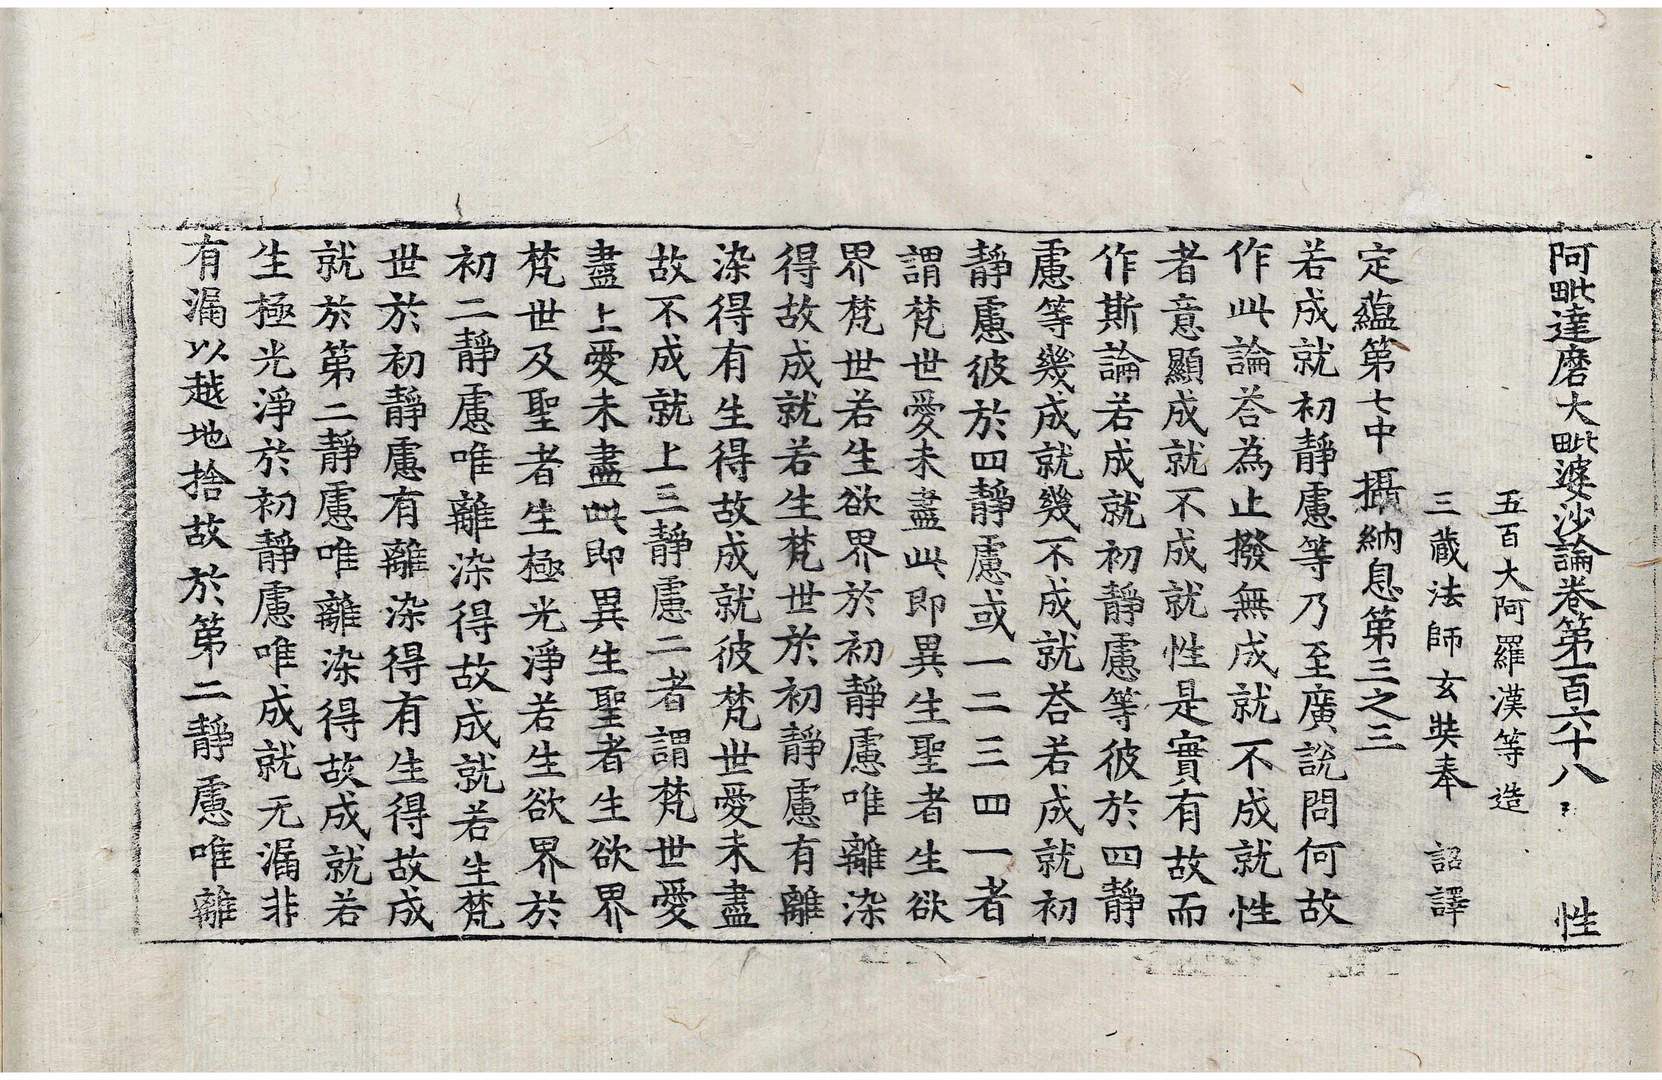 阿毗達磨大毗婆沙論卷第一百六十八 性
五百大阿羅漢等造
三藏法師玄奘奉 詔譯
定蘊第七中攝納息第三之三
若成就初靜慮等乃至廣說問何故
作此論荅為止撥無成就不成就性
者意顯成就不成就性是實有故而
作斯論若成就初靜慮等彼於四靜
慮等幾成就幾不成就荅若成就初
靜慮彼於四靜慮或一二三四一者
謂梵世愛未盡此即異生聖者生欲
界梵世若生欲界於初靜慮唯離染
得故成就若生梵世於初靜慮有離
染得有生得故成就彼梵世愛未盡
故不成就上三靜慮二者謂梵世愛
盡上愛未盡此即異生聖者生欲界
梵世及聖者生極光淨若生欲界於
初二靜慮唯離染得故成就若生梵
世於初靜慮有離染得有生得故成
就於第二靜慮唯離染得故成就若
生極光淨於初靜慮唯成就无漏非
有漏以越地捨故於第二靜慮唯離